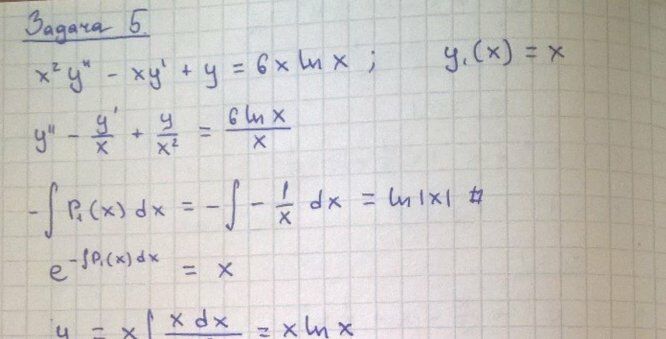 Задача 5.
x² y'' - xy' + y = 6x ln x ; y₁(x) = x
y'' - y'/x + y/x² = 6 ln x / x
-∫ P₁(x) dx = -∫ - 1/x dx = ln |x|
e^(-∫P₁(x) dx) = x
y = x ∫ x dx = x ln x